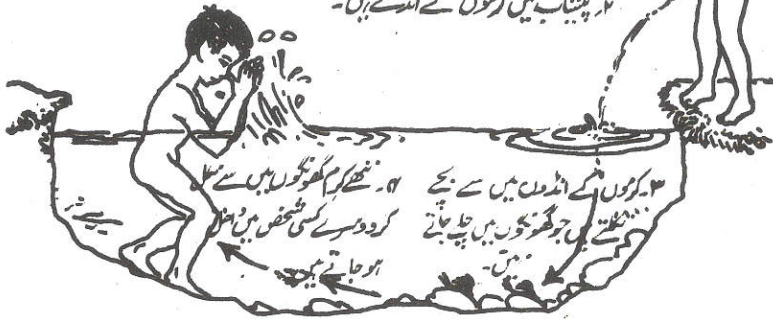 ۲۔ پیشاب میں کرموں کے انڈے ہیں۔
۳۔ کرموں کے انڈوں میں سے بچے
نکلتے ہیں جو گھونگوں میں چلے جاتے
ہیں۔
۴۔ ننھے کرم گھونگوں میں سے نکل
کر دوسرے کسی شخص میں داخل
ہو جاتے ہیں۔